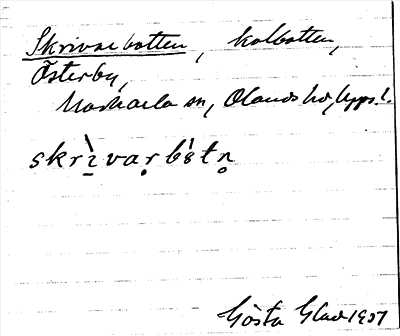 Skrivarbotten, kolbotten,
Österby,
Morkarla sn, Olands hd, Upps. l.
skrìvaṛbòtṇ
Gösta Glad 1951